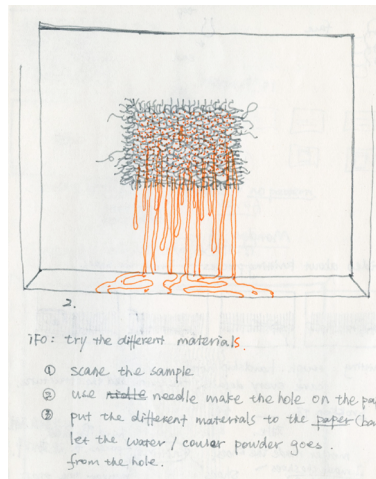 2.
IFO: try the different materials.
① scane the sample
② use needle make the hole on the pa
③ put the different materials to the paper
let the water / couler powder goes.
from the hole.